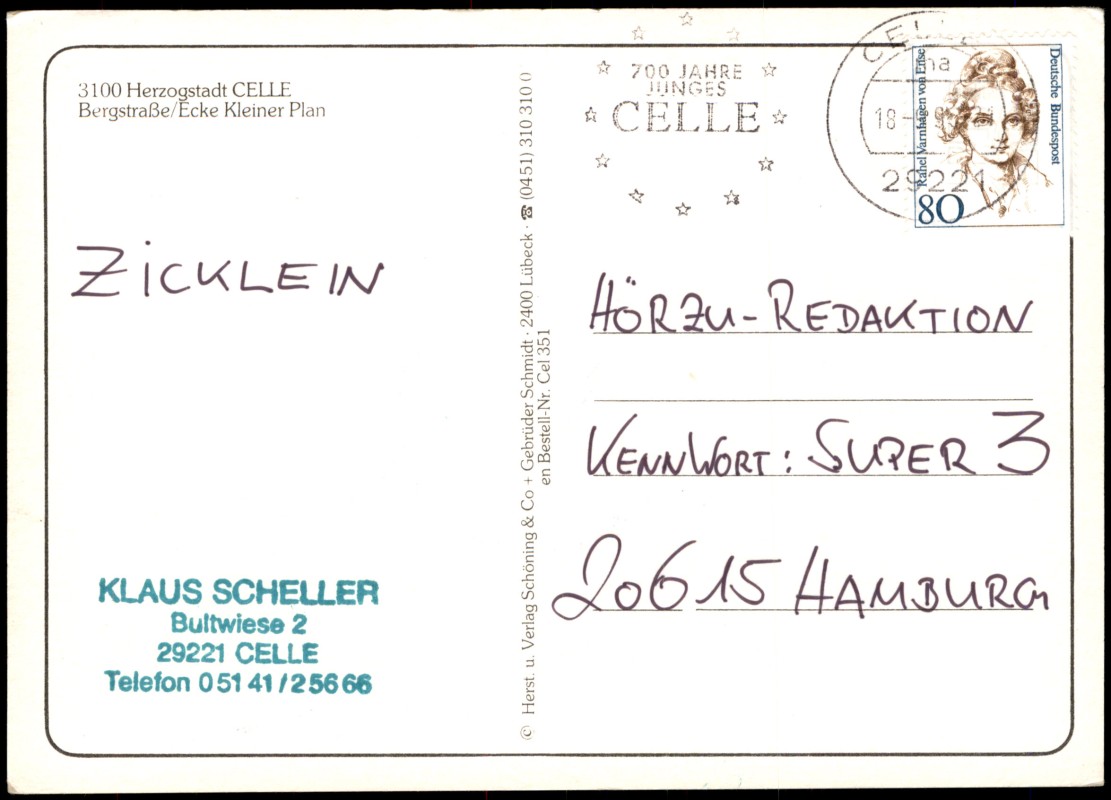 3100 Herzogstadt CELLE
Bergstraße/Ecke Kleiner Plan
ZICKLEIN
KLAUS SCHELLER
Bultwiese 2
29221 CELLE
Telefon 0 51 41 / 2 56 66
© Herst. u. Verlag Schöning & Co + Gebrüder Schmidt · 2400 Lübeck · ☎ (0451) 310 310 0
en Bestell-Nr. Cel 351
700 JAHRE
JUNGES
CELLE
CELLE
18
29221
Rahel Varnhagen von Ense
Deutsche Bundespost
80
HÖRZU-REDAKTION
KENNWORT: SUPER 3
20615 HAMBURG